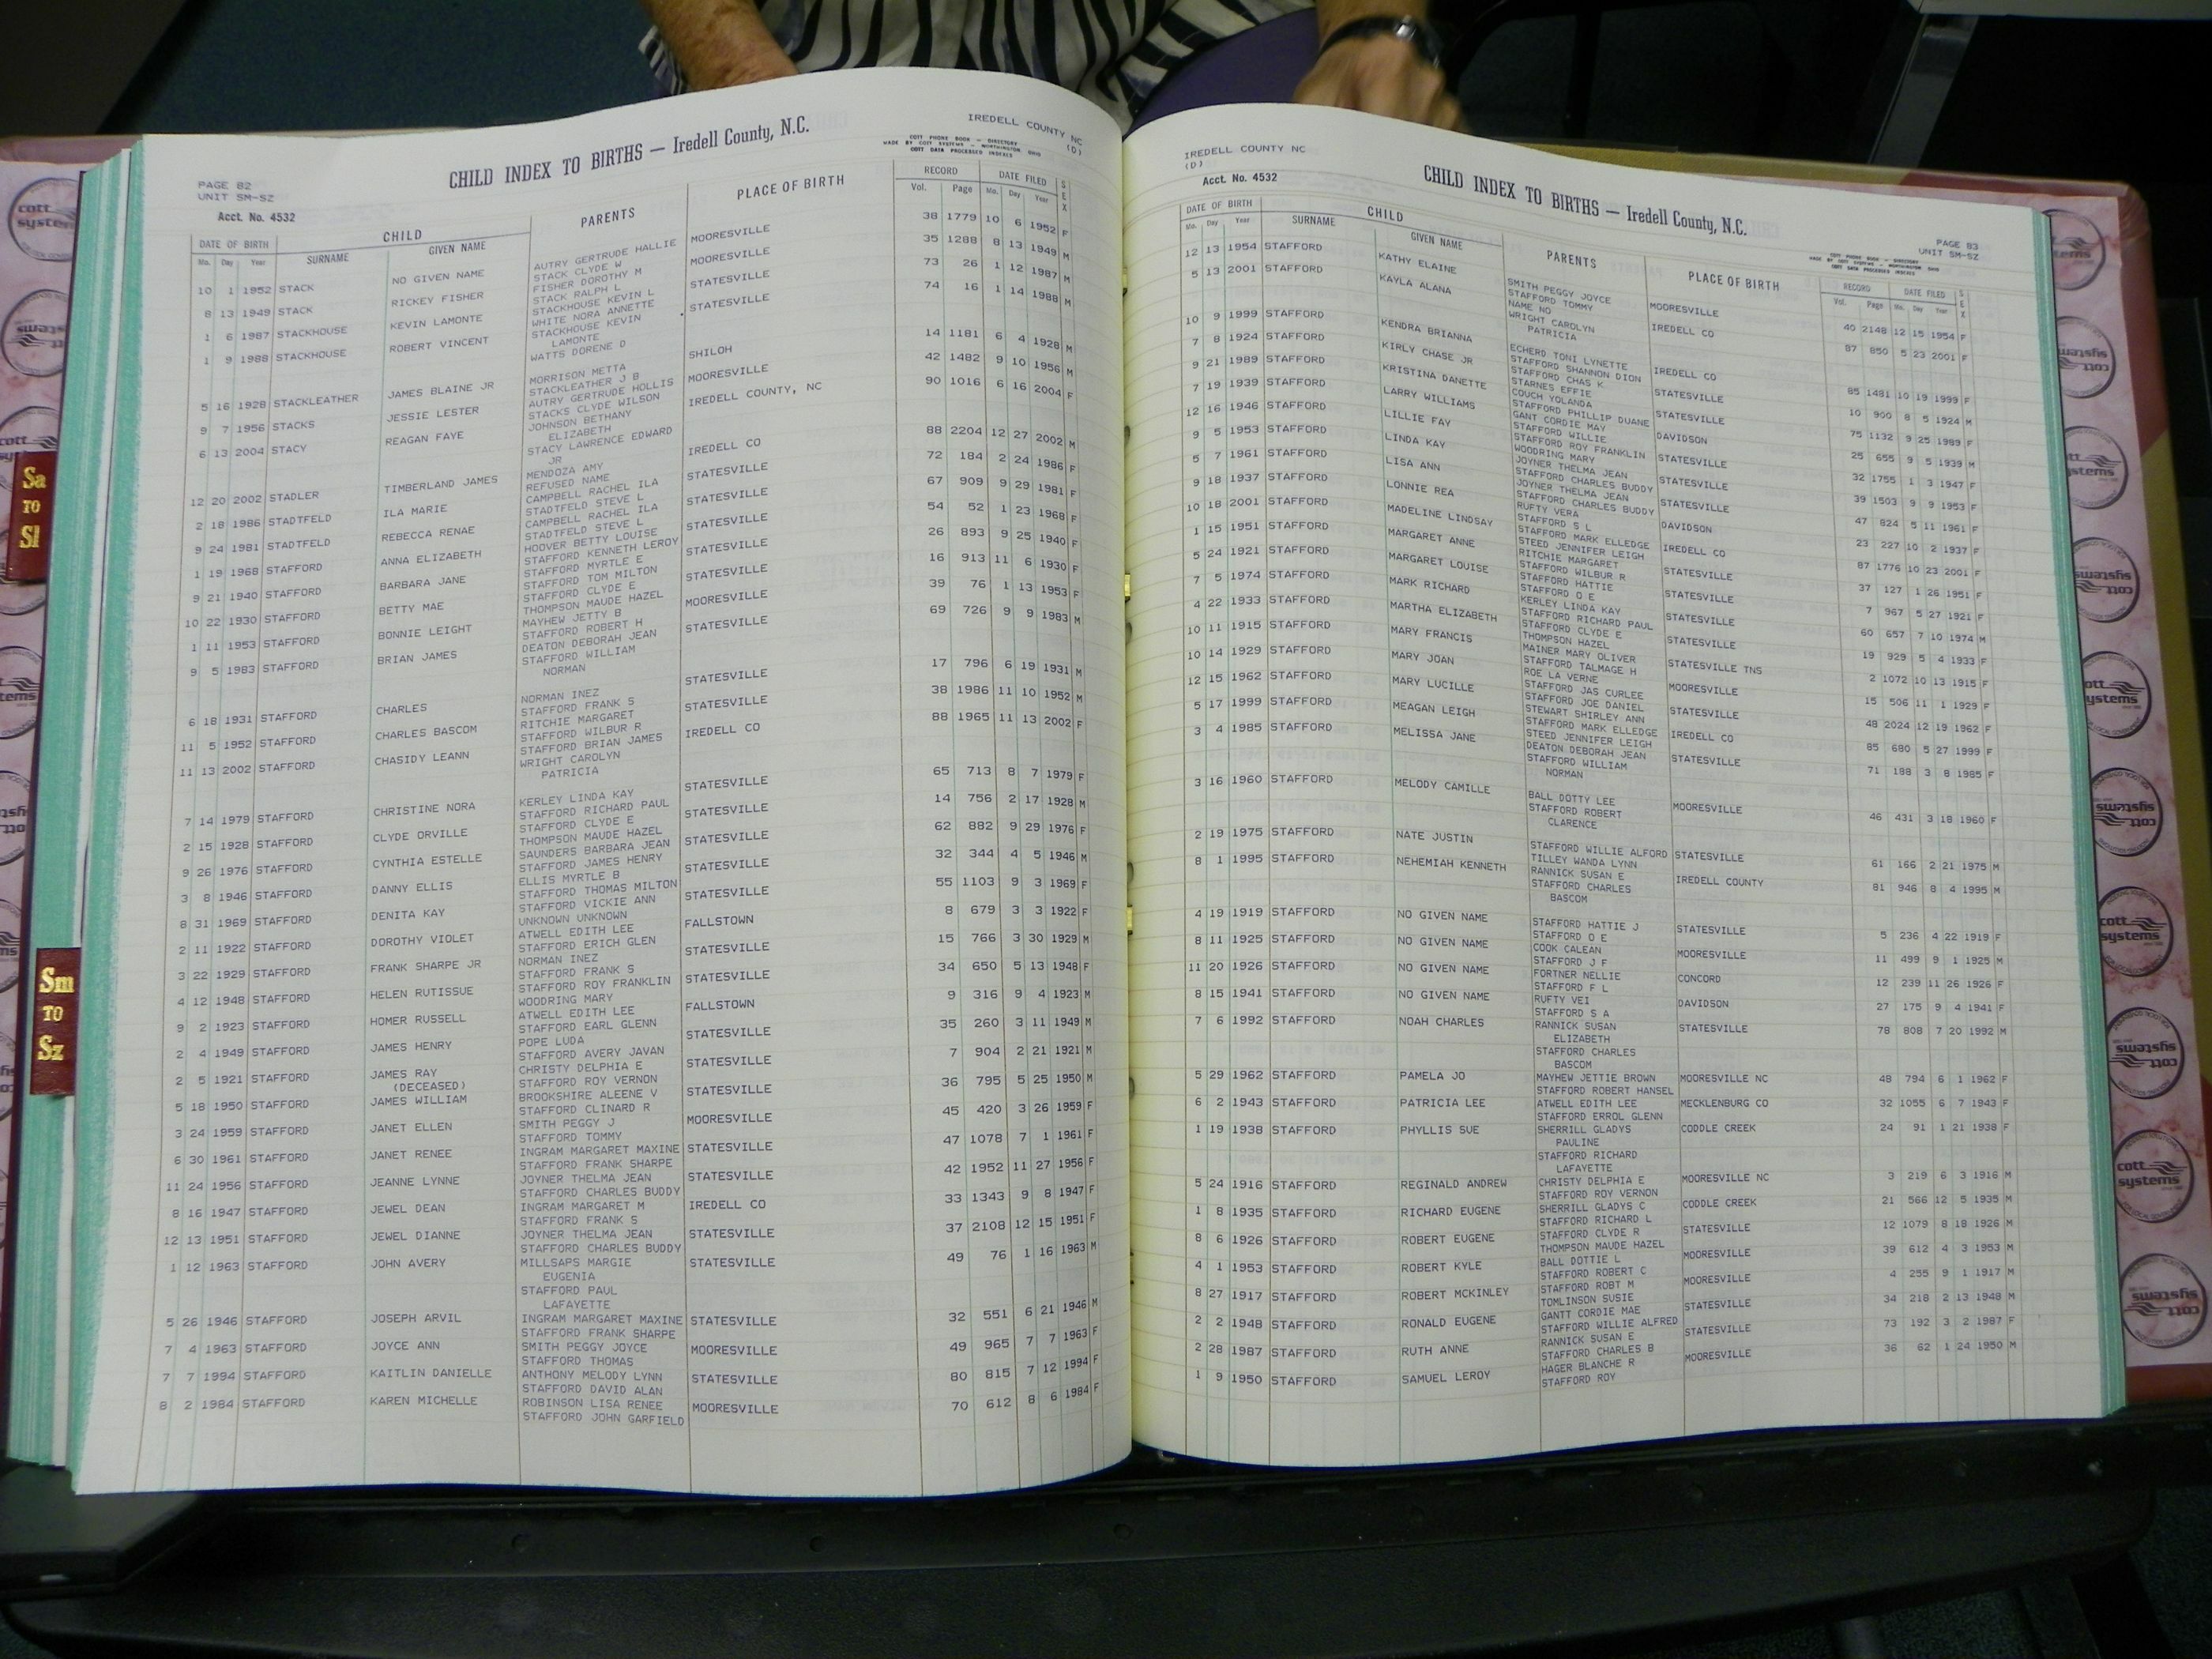 IREDELL COUNTY NC
(D)
CHILD INDEX TO BIRTHS — Iredell County, N.C.
COTT PHONE BOOK — DIRECTORY
MADE BY COTT SYSTEMS — WORTHINGTON, OHIO
COTT DATA PROCESSED INDEXES
PAGE 82
UNIT SM-SZ
Acct. No. 4532
DATE OF BIRTH CHILD PARENTS PLACE OF BIRTH RECORD DATE FILED SEX
Mo. Day Year SURNAME GIVEN NAME Vol. Page Mo. Day Year
10 1 1952 STACK NO GIVEN NAME AUTRY GERTRUDE HALLIE MOORESVILLE 38 1779 10 6 1952 F
STACK CLYDE W
8 13 1949 STACK RICKEY FISHER FISHER DOROTHY M MOORESVILLE 35 1288 8 13 1949 M
STACK RALPH L
1 6 1987 STACKHOUSE KEVIN LAMONTE STACKHOUSE KEVIN L STATESVILLE 73 26 1 12 1987 M
WHITE NORA ANNETTE
1 9 1988 STACKHOUSE ROBERT VINCENT STACKHOUSE KEVIN STATESVILLE 74 16 1 14 1988 M
LAMONTE
WATTS DORENE D
5 16 1928 STACKLEATHER JAMES BLAINE JR MORRISON METTA SHILOH 14 1181 6 4 1928 M
STACKLEATHER J B
9 7 1956 STACKS JESSIE LESTER AUTRY GERTRUDE HOLLIS MOORESVILLE 42 1482 9 10 1956 M
STACKS CLYDE WILSON
6 13 2004 STACY REAGAN FAYE JOHNSON BETHANY IREDELL COUNTY, NC 90 1016 6 16 2004 F
ELIZABETH
STACY LAWRENCE EDWARD
JR
12 20 2002 STADLER TIMBERLAND JAMES MENDOZA AMY IREDELL CO 88 2204 12 27 2002 M
REFUSED NAME
2 18 1986 STADTFELD ILA MARIE CAMPBELL RACHEL ILA STATESVILLE 72 184 2 24 1986 F
STADTFELD STEVE L
9 24 1981 STADTFELD REBECCA RENAE CAMPBELL RACHEL ILA STATESVILLE 67 909 9 29 1981 F
STADTFELD STEVE L
1 19 1968 STAFFORD ANNA ELIZABETH HOOVER BETTY LOUISE STATESVILLE 54 52 1 23 1968 F
STAFFORD KENNETH LEROY
9 21 1940 STAFFORD BARBARA JANE STAFFORD MYRTLE E STATESVILLE 26 893 9 25 1940 F
STAFFORD TOM MILTON
10 22 1930 STAFFORD BETTY MAE STAFFORD CLYDE E STATESVILLE 16 913 11 6 1930 F
THOMPSON MAUDE HAZEL
1 11 1953 STAFFORD BONNIE LEIGHT MAYHEW JETTY B MOORESVILLE 39 76 1 13 1953 F
STAFFORD ROBERT H
9 5 1983 STAFFORD BRIAN JAMES DEATON DEBORAH JEAN STATESVILLE 69 726 9 9 1983 M
STAFFORD WILLIAM
NORMAN
6 18 1931 STAFFORD CHARLES NORMAN INEZ STATESVILLE 17 796 6 19 1931 M
STAFFORD FRANK S
11 5 1952 STAFFORD CHARLES BASCOM RITCHIE MARGARET STATESVILLE 38 1986 11 10 1952 M
STAFFORD WILBUR R
11 13 2002 STAFFORD CHASIDY LEANN STAFFORD BRIAN JAMES IREDELL CO 88 1965 11 13 2002 F
WRIGHT CAROLYN
PATRICIA
7 14 1979 STAFFORD CHRISTINE NORA KERLEY LINDA KAY STATESVILLE 65 713 8 7 1979 F
STAFFORD RICHARD PAUL
2 15 1928 STAFFORD CLYDE ORVILLE STAFFORD CLYDE E STATESVILLE 14 756 2 17 1928 M
THOMPSON MAUDE HAZEL
9 26 1976 STAFFORD CYNTHIA ESTELLE SAUNDERS BARBARA JEAN STATESVILLE 62 882 9 29 1976 F
STAFFORD JAMES HENRY
3 8 1946 STAFFORD DANNY ELLIS ELLIS MYRTLE B STATESVILLE 32 344 4 5 1946 M
STAFFORD THOMAS MILTON
8 31 1969 STAFFORD DENITA KAY STAFFORD VICKIE ANN STATESVILLE 55 1103 9 3 1969 F
UNKNOWN UNKNOWN
2 11 1922 STAFFORD DOROTHY VIOLET ATWELL EDITH LEE FALLSTOWN 8 679 3 3 1922 F
STAFFORD ERICH GLEN
3 22 1929 STAFFORD FRANK SHARPE JR NORMAN INEZ STATESVILLE 15 766 3 30 1929 M
STAFFORD FRANK S
4 12 1948 STAFFORD HELEN RUTISSUE STAFFORD ROY FRANKLIN STATESVILLE 34 650 5 13 1948 F
WOODRING MARY
9 2 1923 STAFFORD HOMER RUSSELL ATWELL EDITH LEE FALLSTOWN 9 316 9 4 1923 M
STAFFORD EARL GLENN
2 4 1949 STAFFORD JAMES HENRY POPE LUDA STATESVILLE 35 260 3 11 1949 M
STAFFORD AVERY JAVAN
2 5 1921 STAFFORD JAMES RAY CHRISTY DELPHIA E STATESVILLE 7 904 2 21 1921 M
(DECEASED) STAFFORD ROY VERNON
5 18 1950 STAFFORD JAMES WILLIAM BROOKSHIRE ALEENE V STATESVILLE 36 795 5 25 1950 M
STAFFORD CLINARD R
3 24 1959 STAFFORD JANET ELLEN SMITH PEGGY J MOORESVILLE 45 420 3 26 1959 F
STAFFORD TOMMY
6 30 1961 STAFFORD JANET RENEE INGRAM MARGARET MAXINE STATESVILLE 47 1078 7 1 1961 F
STAFFORD FRANK SHARPE
11 24 1956 STAFFORD JEANNE LYNNE JOYNER THELMA JEAN STATESVILLE 42 1952 11 27 1956 F
STAFFORD CHARLES BUDDY
8 16 1947 STAFFORD JEWEL DEAN INGRAM MARGARET M IREDELL CO 33 1343 9 8 1947 F
STAFFORD FRANK S
12 13 1951 STAFFORD JEWEL DIANNE JOYNER THELMA JEAN STATESVILLE 37 2108 12 15 1951 F
STAFFORD CHARLES BUDDY
1 12 1963 STAFFORD JOHN AVERY MILLSAPS MARGIE STATESVILLE 49 76 1 16 1963 M
EUGENIA
STAFFORD PAUL
LAFAYETTE
5 26 1946 STAFFORD JOSEPH ARVIL INGRAM MARGARET MAXINE STATESVILLE 32 551 6 21 1946 M
STAFFORD FRANK SHARPE
7 4 1963 STAFFORD JOYCE ANN SMITH PEGGY JOYCE MOORESVILLE 49 965 7 7 1963 F
STAFFORD THOMAS
7 7 1994 STAFFORD KAITLIN DANIELLE ANTHONY MELODY LYNN STATESVILLE 80 815 7 12 1994 F
STAFFORD DAVID ALAN
8 2 1984 STAFFORD KAREN MICHELLE ROBINSON LISA RENEE MOORESVILLE 70 612 8 6 1984 F
STAFFORD JOHN GARFIELD
IREDELL COUNTY NC
(D)
Acct. No. 4532
CHILD INDEX TO BIRTHS — Iredell County, N.C.
PAGE 83
UNIT SM-SZ
COTT PHONE BOOK — DIRECTORY
MADE BY COTT SYSTEMS — WORTHINGTON, OHIO
COTT DATA PROCESSED INDEXES
DATE OF BIRTH CHILD PARENTS PLACE OF BIRTH RECORD DATE FILED SEX
Mo. Day Year SURNAME GIVEN NAME Vol. Page Mo. Day Year
12 13 1954 STAFFORD KATHY ELAINE SMITH PEGGY JOYCE MOORESVILLE 40 2148 12 15 1954 F
STAFFORD TOMMY
5 13 2001 STAFFORD KAYLA ALANA NAME NO IREDELL CO 87 850 5 23 2001 F
WRIGHT CAROLYN
PATRICIA
10 9 1999 STAFFORD KENDRA BRIANNA ECHERD TONI LYNETTE IREDELL CO 85 1481 10 19 1999 F
STAFFORD SHANNON DION
7 8 1924 STAFFORD KIRLY CHASE JR STAFFORD CHAS K STATESVILLE 10 900 8 5 1924 M
STARNES EFFIE
9 21 1989 STAFFORD KRISTINA DANETTE COUCH YOLANDA STATESVILLE 75 1132 9 25 1989 F
STAFFORD PHILLIP DUANE
7 19 1939 STAFFORD LARRY WILLIAMS GANT CORDIE MAY DAVIDSON 25 655 9 5 1939 M
STAFFORD WILLIE
12 16 1946 STAFFORD LILLIE FAY STAFFORD ROY FRANKLIN STATESVILLE 32 1755 1 3 1947 F
WOODRING MARY
9 5 1953 STAFFORD LINDA KAY JOYNER THELMA JEAN STATESVILLE 39 1503 9 9 1953 F
STAFFORD CHARLES BUDDY
5 7 1961 STAFFORD LISA ANN JOYNER THELMA JEAN STATESVILLE 47 824 5 11 1961 F
STAFFORD CHARLES BUDDY
9 18 1937 STAFFORD LONNIE REA RUFTY VERA DAVIDSON 23 227 10 2 1937 F
STAFFORD S L
10 18 2001 STAFFORD MADELINE LINDSAY STAFFORD MARK ELLEDGE IREDELL CO 87 1776 10 23 2001 F
STEED JENNIFER LEIGH
1 15 1951 STAFFORD MARGARET ANNE RITCHIE MARGARET STATESVILLE 37 127 1 26 1951 F
STAFFORD WILBUR R
5 24 1921 STAFFORD MARGARET LOUISE STAFFORD HATTIE STATESVILLE 7 967 5 27 1921 F
STAFFORD O E
7 5 1974 STAFFORD MARK RICHARD KERLEY LINDA KAY STATESVILLE 60 657 7 10 1974 M
STAFFORD RICHARD PAUL
4 22 1933 STAFFORD MARTHA ELIZABETH STAFFORD CLYDE E STATESVILLE 19 929 5 4 1933 F
THOMPSON HAZEL
10 11 1915 STAFFORD MARY FRANCIS MAINER MARY OLIVER STATESVILLE TNS 2 1072 10 13 1915 F
STAFFORD TALMAGE H
10 14 1929 STAFFORD MARY JOAN ROE LA VERNE MOORESVILLE 15 506 11 1 1929 F
STAFFORD JAS CURLEE
12 15 1962 STAFFORD MARY LUCILLE STAFFORD JOE DANIEL STATESVILLE 48 2024 12 19 1962 F
STEWART SHIRLEY ANN
5 17 1999 STAFFORD MEAGAN LEIGH STAFFORD MARK ELLEDGE IREDELL CO 85 680 5 27 1999 F
STEED JENNIFER LEIGH
3 4 1985 STAFFORD MELISSA JANE DEATON DEBORAH JEAN STATESVILLE 71 188 3 8 1985 F
STAFFORD WILLIAM
NORMAN
3 16 1960 STAFFORD MELODY CAMILLE BALL DOTTY LEE MOORESVILLE 46 431 3 18 1960 F
STAFFORD ROBERT
CLARENCE
2 19 1975 STAFFORD NATE JUSTIN STAFFORD WILLIE ALFORD STATESVILLE 61 166 2 21 1975 M
TILLEY WANDA LYNN
8 1 1995 STAFFORD NEHEMIAH KENNETH RANNICK SUSAN E IREDELL COUNTY 81 946 8 4 1995 M
STAFFORD CHARLES
BASCOM
4 19 1919 STAFFORD NO GIVEN NAME STAFFORD HATTIE J STATESVILLE 5 236 4 22 1919 F
STAFFORD O E
8 11 1925 STAFFORD NO GIVEN NAME COOK CALEAN MOORESVILLE 11 499 9 1 1925 M
STAFFORD J F
11 20 1926 STAFFORD NO GIVEN NAME FORTNER NELLIE CONCORD 12 239 11 26 1926 F
STAFFORD F L
8 15 1941 STAFFORD NO GIVEN NAME RUFTY VEI DAVIDSON 27 175 9 4 1941 F
STAFFORD S A
7 6 1992 STAFFORD NOAH CHARLES RANNICK SUSAN STATESVILLE 78 808 7 20 1992 M
ELIZABETH
STAFFORD CHARLES
BASCOM
5 29 1962 STAFFORD PAMELA JO MAYHEW JETTIE BROWN MOORESVILLE NC 48 794 6 1 1962 F
STAFFORD ROBERT HANSEL
6 2 1943 STAFFORD PATRICIA LEE ATWELL EDITH LEE MECKLENBURG CO 32 1055 6 7 1943 F
STAFFORD ERROL GLENN
1 19 1938 STAFFORD PHYLLIS SUE SHERRILL GLADYS CODDLE CREEK 24 91 1 21 1938 F
PAULINE
STAFFORD RICHARD
LAFAYETTE
5 24 1916 STAFFORD REGINALD ANDREW CHRISTY DELPHIA E MOORESVILLE NC 3 219 6 3 1916 M
STAFFORD ROY VERNON
1 8 1935 STAFFORD RICHARD EUGENE SHERRILL GLADYS C CODDLE CREEK 21 566 12 5 1935 M
STAFFORD RICHARD L
8 6 1926 STAFFORD ROBERT EUGENE STAFFORD CLYDE R STATESVILLE 12 1079 8 18 1926 M
THOMPSON MAUDE HAZEL
4 1 1953 STAFFORD ROBERT KYLE BALL DOTTIE L MOORESVILLE 39 612 4 3 1953 M
STAFFORD ROBERT C
8 27 1917 STAFFORD ROBERT MCKINLEY STAFFORD ROBT M MOORESVILLE 4 255 9 1 1917 M
TOMLINSON SUSIE
2 2 1948 STAFFORD RONALD EUGENE GANTT CORDIE MAE STATESVILLE 34 218 2 13 1948 M
STAFFORD WILLIE ALFRED
2 28 1987 STAFFORD RUTH ANNE RANNICK SUSAN E STATESVILLE 73 192 3 2 1987 F
STAFFORD CHARLES B
1 9 1950 STAFFORD SAMUEL LEROY HAGER BLANCHE R MOORESVILLE 36 62 1 24 1950 M
STAFFORD ROY
Sa
TO
Sl
Sm
TO
Sz
cott
systems